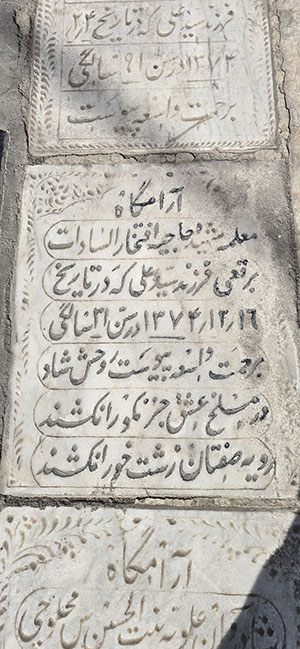 فرزند سید علی که در تاریخ ۲۴
۱۳۷۴ در سن ۹۱ سالگی
برحمت واسعه پیوست
آرامگاه
معلمه شهیده حاجیه افتخار السادات
برقعی فرزند سید علی که در تاریخ
۱۳۷۴٫۱۲٫۱۶ در سن ۳۱ سالگی
برحمت واسعه پیوست روحش شاد
در مسلخ عشق جز نکو را نکشند
روبه صفتان زشت خو را نکشند
آرامگاه
علویه بنت الحسن س محلوجی